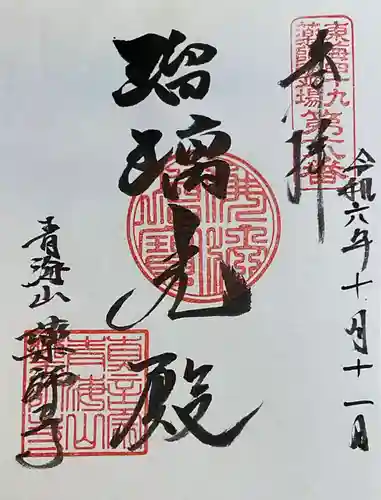 奉拝
令和六年十月十一日
東海四十九
薬師霊場第二八番
瑠璃光殿
青海山
薬師寺